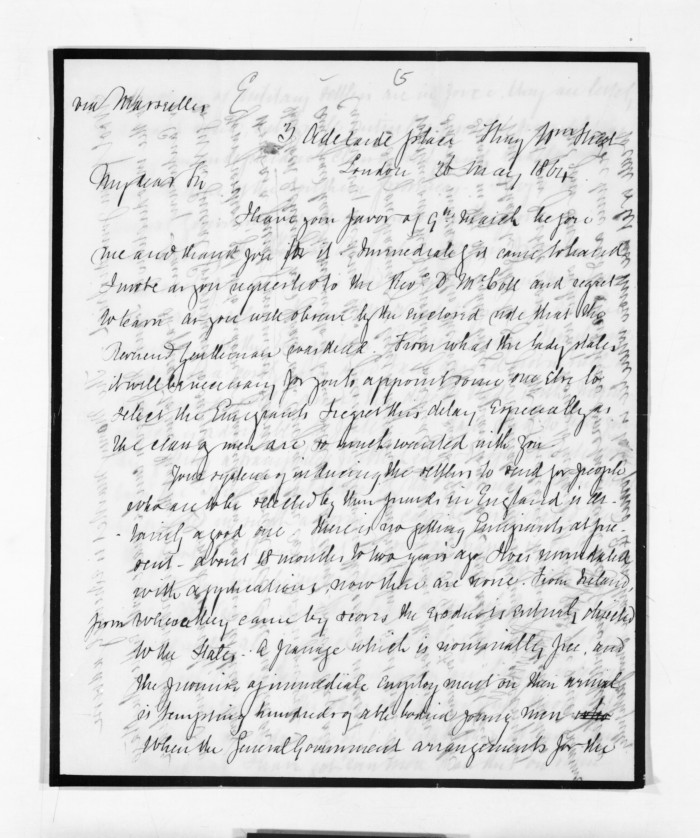 G
via Marseilles
3 Adelaide place King Wm Street
London 26 May 1864
My dear Sir
I have your favor of 9th March before
me and thank you for it. Immediately it came to hand
I wrote as you requested to the Revd D McColl and regret
to learn as you will observe by the enclosed note that the
Reverend Gentleman was dead. From what the lady states
it will be necessary for you to appoint some one else to
select the Emigrants I regret this delay Especially as
the class of men are so much wanted with you
Your system of inducing the settlers to send for people
who are to be selected by their friends in England is cer-
-tainly a good one. There is no getting Emigrants at pre-
sent. about 18 months to two years ago I was inundated
with applications, now there are none. From Ireland,
from whence they came by scores the exodus is entirely directed
to the States. A passage which is nominally free, and
the promise of immediate employment on their arrival
is tempting hundreds of able bodied young men
When the General Government arrangements for the